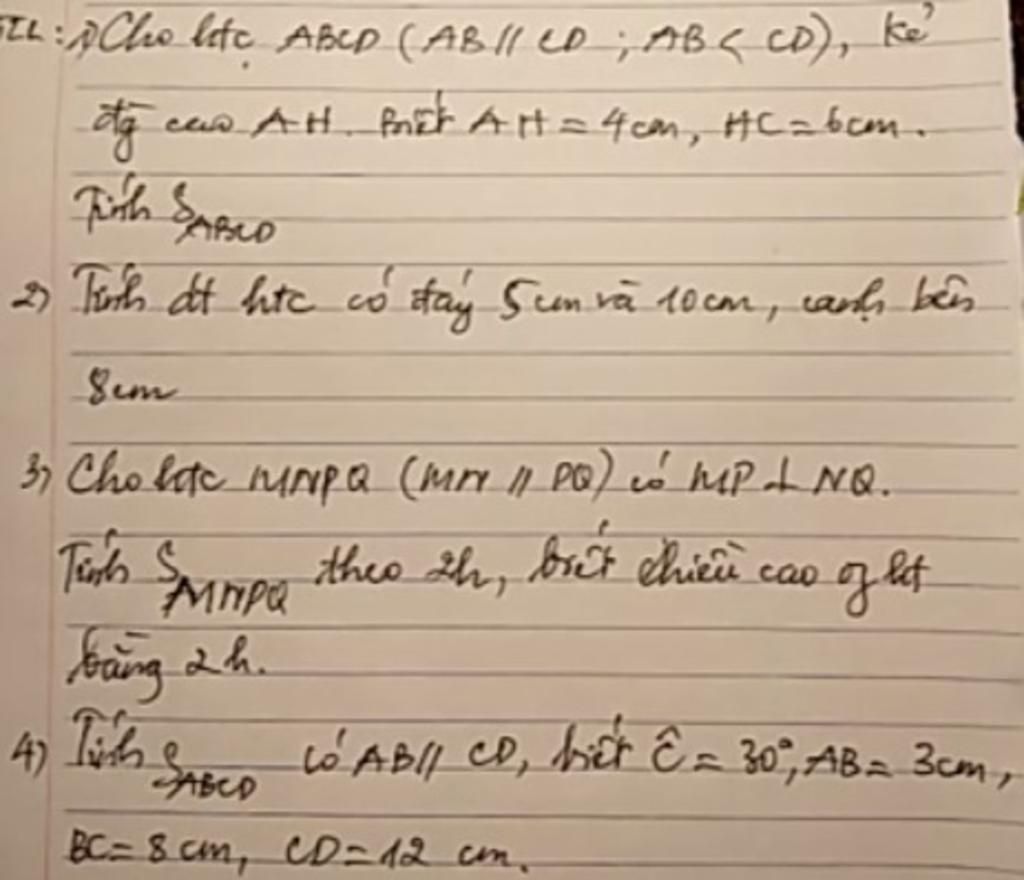 1) Cho htc ABCD (AB // CD ; AB < CD), kẻ
đg cao AH. Biết AH = 4cm, HC = 6cm.
Tính S_ABCD
2) Tính dt htc có đáy 5cm và 10cm, cạnh bên
8cm
3) Cho htc MNPQ (MN // PQ) có MP ⊥ NQ.
Tính S_MNPQ theo 2h, biết chiều cao of ht
bằng 2h.
4) Tính S_ABCD có AB // CD, biết Ĉ = 30°, AB = 3cm,
BC = 8 cm, CD = 12 cm.